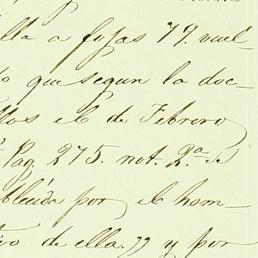 lla a fojas 79. vuel-
o que segun la doc-
llos el de Febrero
Pag. 275. not. 2.ª
bleida por el hom-
ivo de ella.)) y por